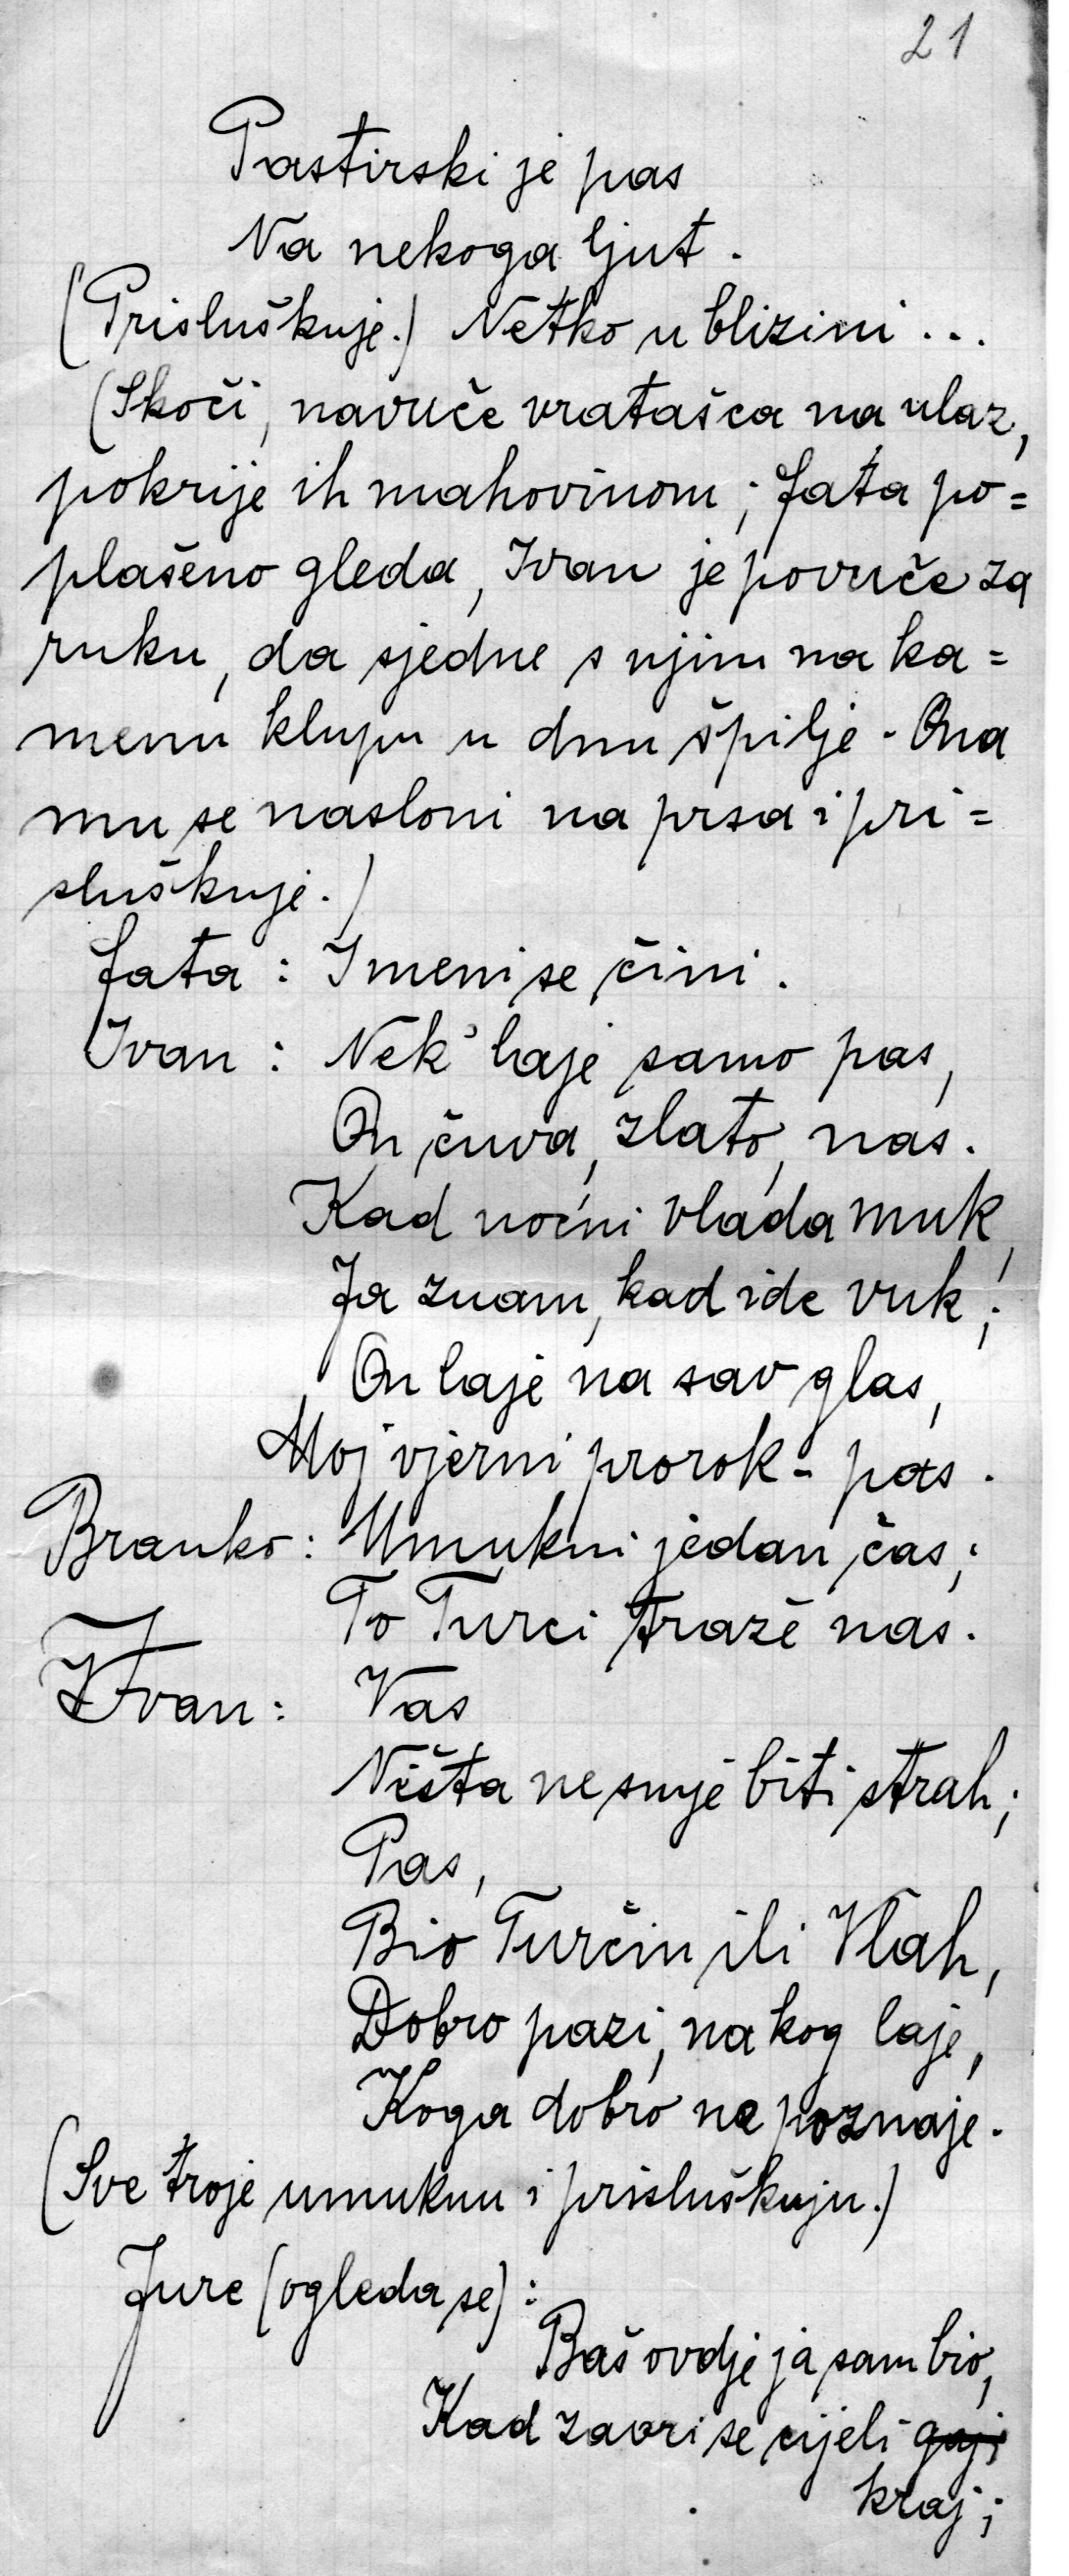 21
Pastirski je pas
Na nekoga ljut.
(Prisluškuje.) Netko u blizini...
(Skoči, navuče vratašca na ulaz,
pokrije ih mahovinom; Fata po=
plašeno gleda, Ivan je povuče za
ruku, da sjedne s njim na ka=
menu klupu u dnu špilje. Ona
mu se nasloni na prsa i pri=
sluškuje.)
Fata: I meni se čini.
Ivan: Nek' laje samo pas,
On čuva, zlato, nas.
Kad noćni vlada muk,
Ja znam, kad ide vuk;
On laje na sav glas,
Moj vjerni prorok - pas.
Branko: Umukni jedan čas;
To Turci traže nas.
Ivan: Vas
Ništa ne smje biti strah;
Pas,
Bio Turčin ili Vlah,
Dobro pazi, na kog laje,
Koga dobro ne poznaje.
(Sve troje umuknu i prisluškuju.)
Jure (ogleda se):
Baš ovdje ja sam bio,
Kad zavri se cijeli gaj;
kraj;